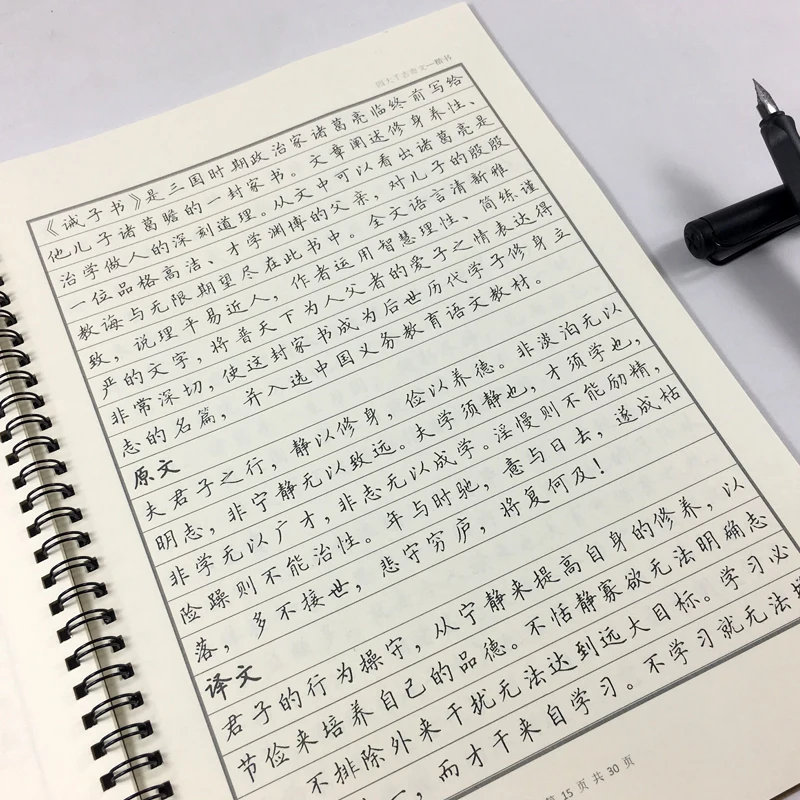 《诫子书》是三国时期政治家诸葛亮临终前写给
他儿子诸葛瞻的一封家书。文章阐述修身养性、
治学做人的深刻道理。从文中可以看出诸葛亮是
一位品格高洁、才学渊博的父亲，对儿子的殷殷
教诲与无限期望尽在此书中。全文语言清新雅
致，说理平易近人，作者运用智慧理性、简练谨
严的文字，将普天下为人父者的爱子之情表达得
非常深切，使这封家书成为后世历代学子修身立
志的名篇，并入选中国义务教育语文教材。
原文
夫君子之行，静以修身，俭以养德。非淡泊无以
明志，非宁静无以致远。夫学须静也，才须学也，
非学无以广才，非志无以成学。淫慢则不能励精，
险躁则不能治性。年与时驰，意与日去，遂成枯
落，多不接世，悲守穷庐，将复何及！
译文
君子的行为操守，从宁静来提高自身的修养，以
节俭来培养自己的品德。不恬静寡欲无法明确志
不排除外来干扰无法达到远大目标。学习必
，而才干来自学习。不学习就无法
第 15 页 共 30 页